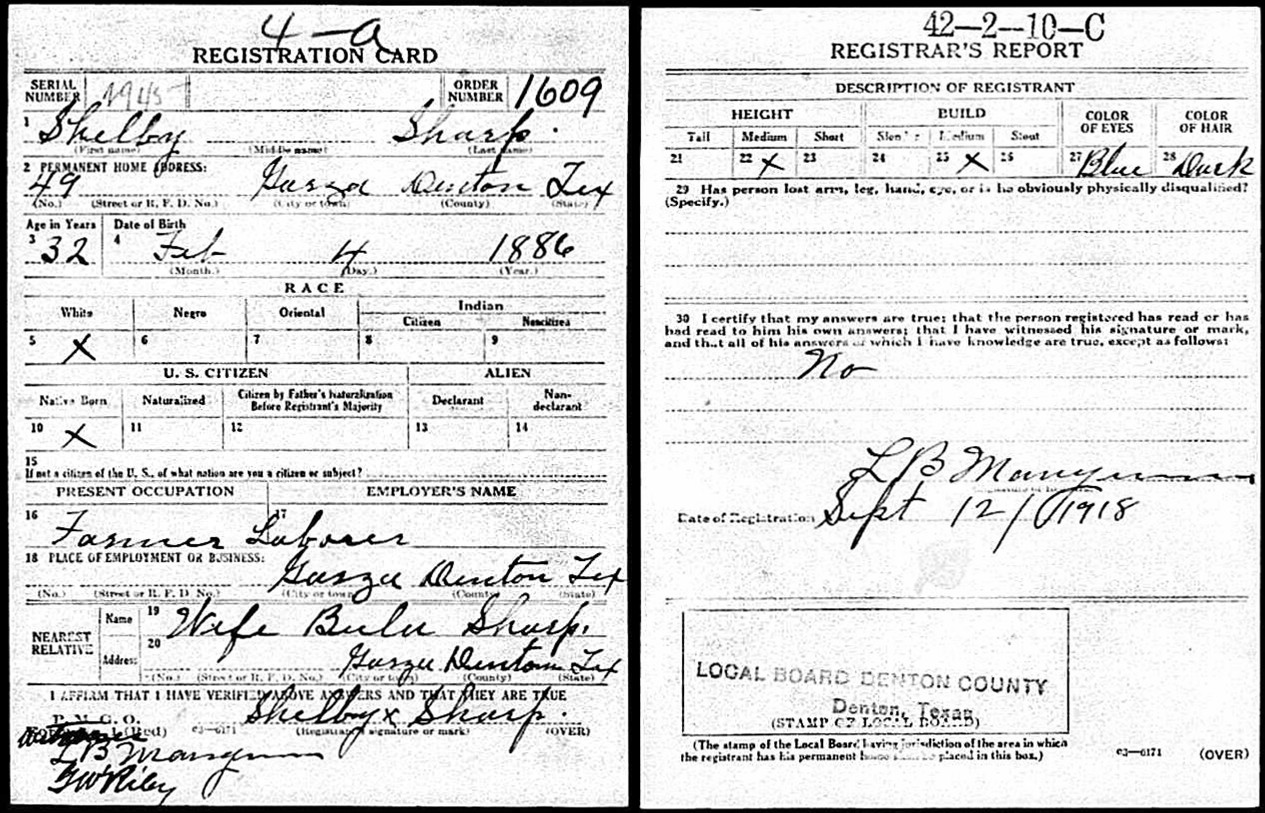 4-a
REGISTRATION CARD
SERIAL NUMBER 1945 ORDER NUMBER 1609
1 Shelby Sharp.
(First name) (Middle name) (Last name)
2 PERMANENT HOME ADDRESS:
49 Garza Denton Tex
(No.) (Street or R. F. D. No.) (City or town) (County) (State)
Age in Years Date of Birth
3 32 4 Feb 4 1886
(Month.) (Day.) (Year.)
RACE
White Negro Oriental Indian
Citizen Noncitizen
5 X 6 7 8 9
U. S. CITIZEN ALIEN
Native Born Naturalized Citizen by Father's Naturalization Before Registrant's Majority Declarant Non-declarant
10 X 11 12 13 14
15
If not a citizen of the U. S., of what nation are you a citizen or subject?
PRESENT OCCUPATION EMPLOYER'S NAME
16 Farmer Laborer 17
18 PLACE OF EMPLOYMENT OR BUSINESS:
Garza Denton Tex
(No.) (Street or R. F. D. No.) (City or town) (County) (State)
NEAREST RELATIVE
Name 19 Wife Beulu Sharp.
Address 20 Garza Denton Tex
(No.) (Street or R. F. D. No.) (City or town) (County) (State)
I AFFIRM THAT I HAVE VERIFIED ABOVE ANSWERS AND THAT THEY ARE TRUE
P. M. G. O.
Form No. 1 (Red) 03—6171 Shelby x Sharp.
(Registrant's signature or mark) (OVER)
L B Mangum
G W Riley
42-2-10-C
REGISTRAR'S REPORT
DESCRIPTION OF REGISTRANT
HEIGHT BUILD COLOR OF EYES COLOR OF HAIR
Tall Medium Short Slender Medium Stout
21 22 X 23 24 25 X 26 27 Blue 28 Dark
29 Has person lost arm, leg, hand, eye, or is he obviously physically disqualified?
(Specify.)
30 I certify that my answers are true; that the person registered has read or has
had read to him his own answers; that I have witnessed his signature or mark,
and that all of his answers of which I have knowledge are true, except as follows:
No
L B Mangum
Date of Registration Sept 12 / 1918
LOCAL BOARD DENTON COUNTY
Denton, Texas
(STAMP OF LOCAL BOARD)
(The stamp of the Local Board having jurisdiction of the area in which
the registrant has his permanent home shall be placed in this box.)
03—6171 (OVER)